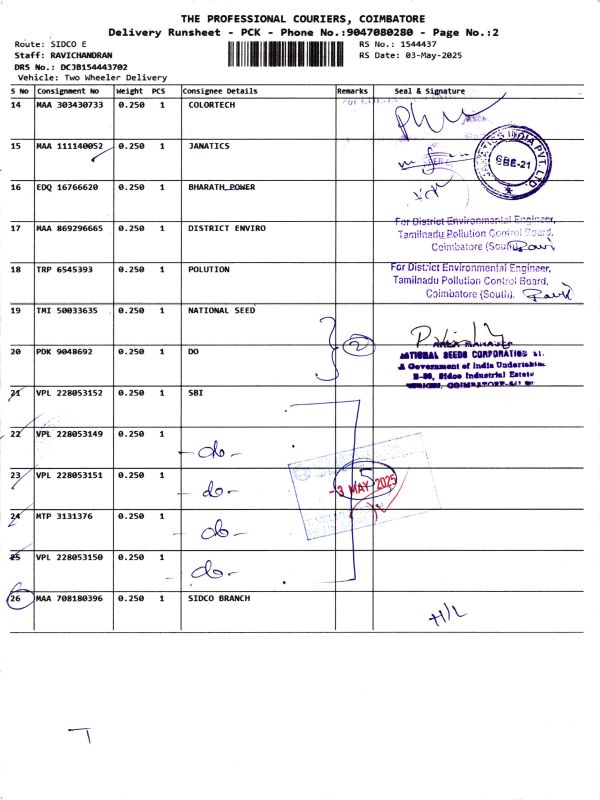 THE PROFESSIONAL COURIERS, COIMBATORE
Delivery Runsheet - PCK - Phone No.:9047080280 - Page No.:2
Route: SIDCO E
Staff: RAVICHANDRAN
DRS No.: DCJB154443702
Vehicle: Two Wheeler Delivery
RS No.: 1544437
RS Date: 03-May-2025
S No Consignment No Weight PCS Consignee Details Remarks Seal & Signature
14 MAA 303430733 0.250 1 COLORTECH
15 MAA 111140052 0.250 1 JANATICS
JANATICS INDIA PVT. LTD.
CBE-21
16 EDQ 16766620 0.250 1 BHARATH POWER
17 MAA 869296665 0.250 1 DISTRICT ENVIRO
For District Environmental Engineer,
Tamilnadu Pollution Control Board,
Coimbatore (South)
18 TRP 6545393 0.250 1 POLUTION
For District Environmental Engineer,
Tamilnadu Pollution Control Board,
Coimbatore (South).
19 TMI 50033635 0.250 1 NATIONAL SEED
20 PDK 9048692 0.250 1 DO
2
AREA MANAGER
NATIONAL SEEDS CORPORATION
A Government of India Undertaking
B-80, Sidco Industrial Estate
21 VPL 228053152 0.250 1 SBI
22 VPL 228053149 0.250 1
- do -
23 VPL 228053151 0.250 1
- do -
5
- 3 MAY 2025
24 MTP 3131376 0.250 1
do -
25 VPL 228053150 0.250 1
do -
26 MAA 708180396 0.250 1 SIDCO BRANCH
H/L